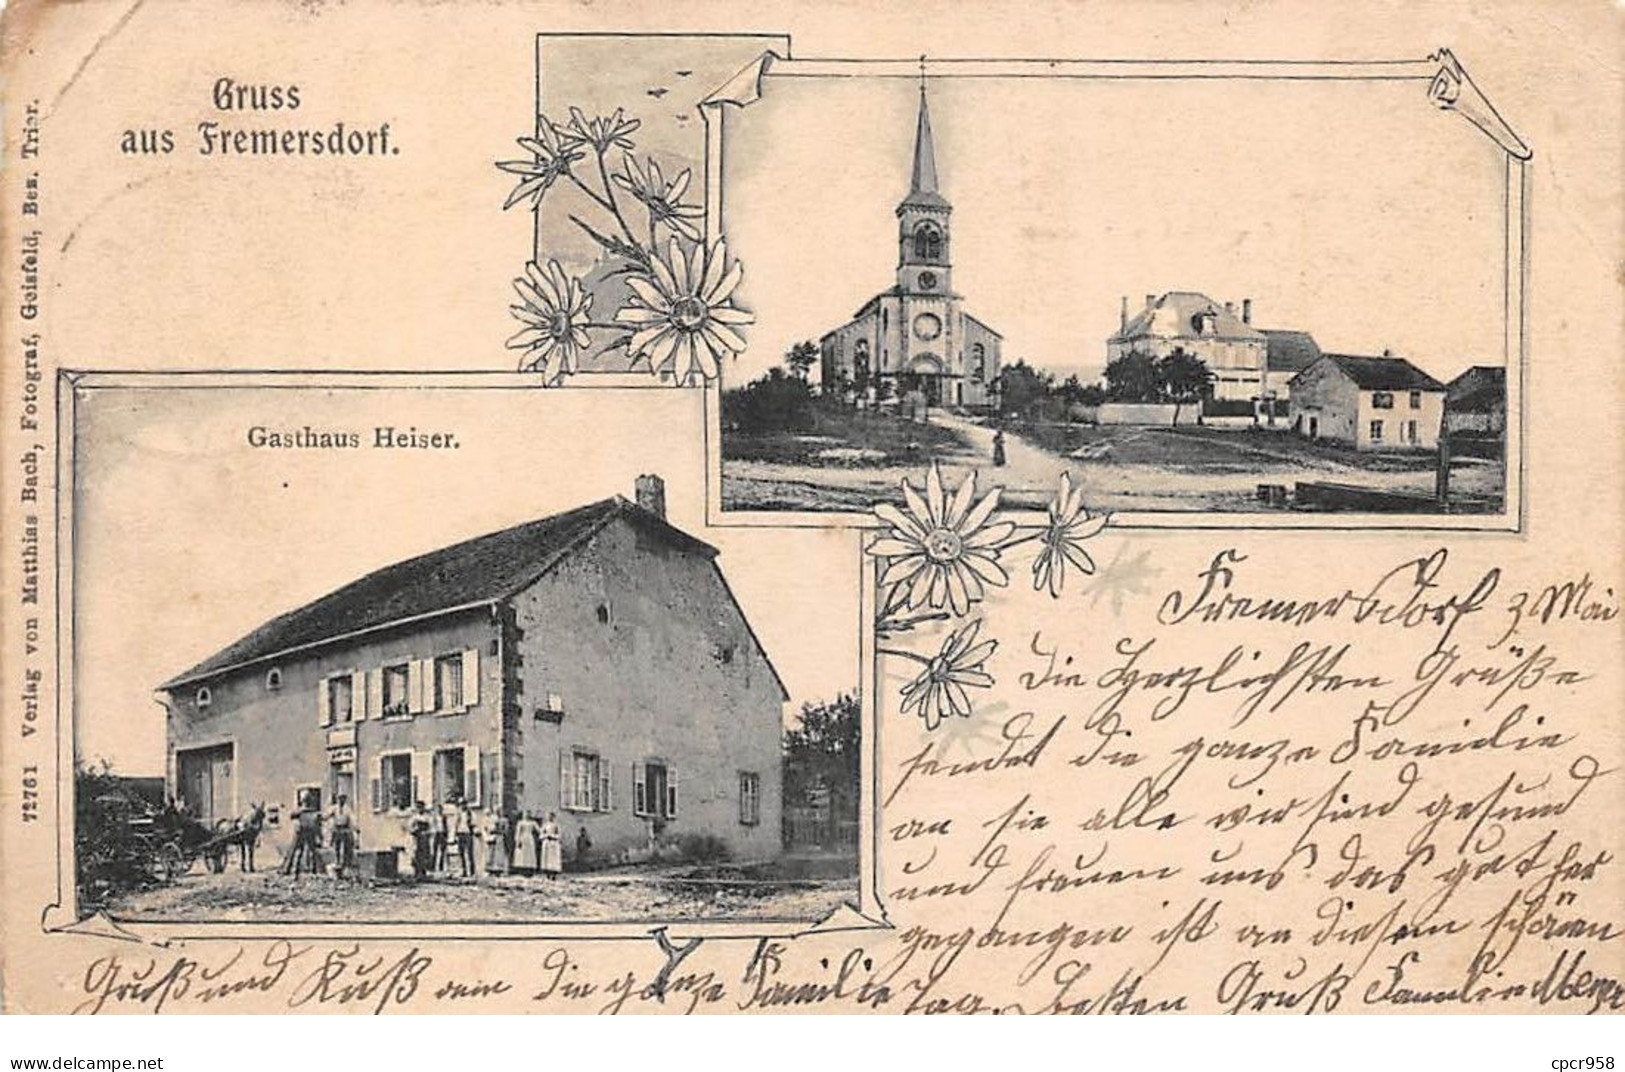 Gruss
aus Fremersdorf.
72761 Verlag von Matthias Bach, Fotograf, Geisfeld, Bez. Trier.
Gasthaus Heiser.
Fremersdorf 3. Mai
Die Herzlichsten Grüße
sendet die ganze Familie
an sie alle wir sind gesund
und freuen uns das gut her
gegangen ist an diesem schönen
Tag. Besten Gruß Familie
Gruß und Kuß die ganze Familie
delcampe.net
cpcr958